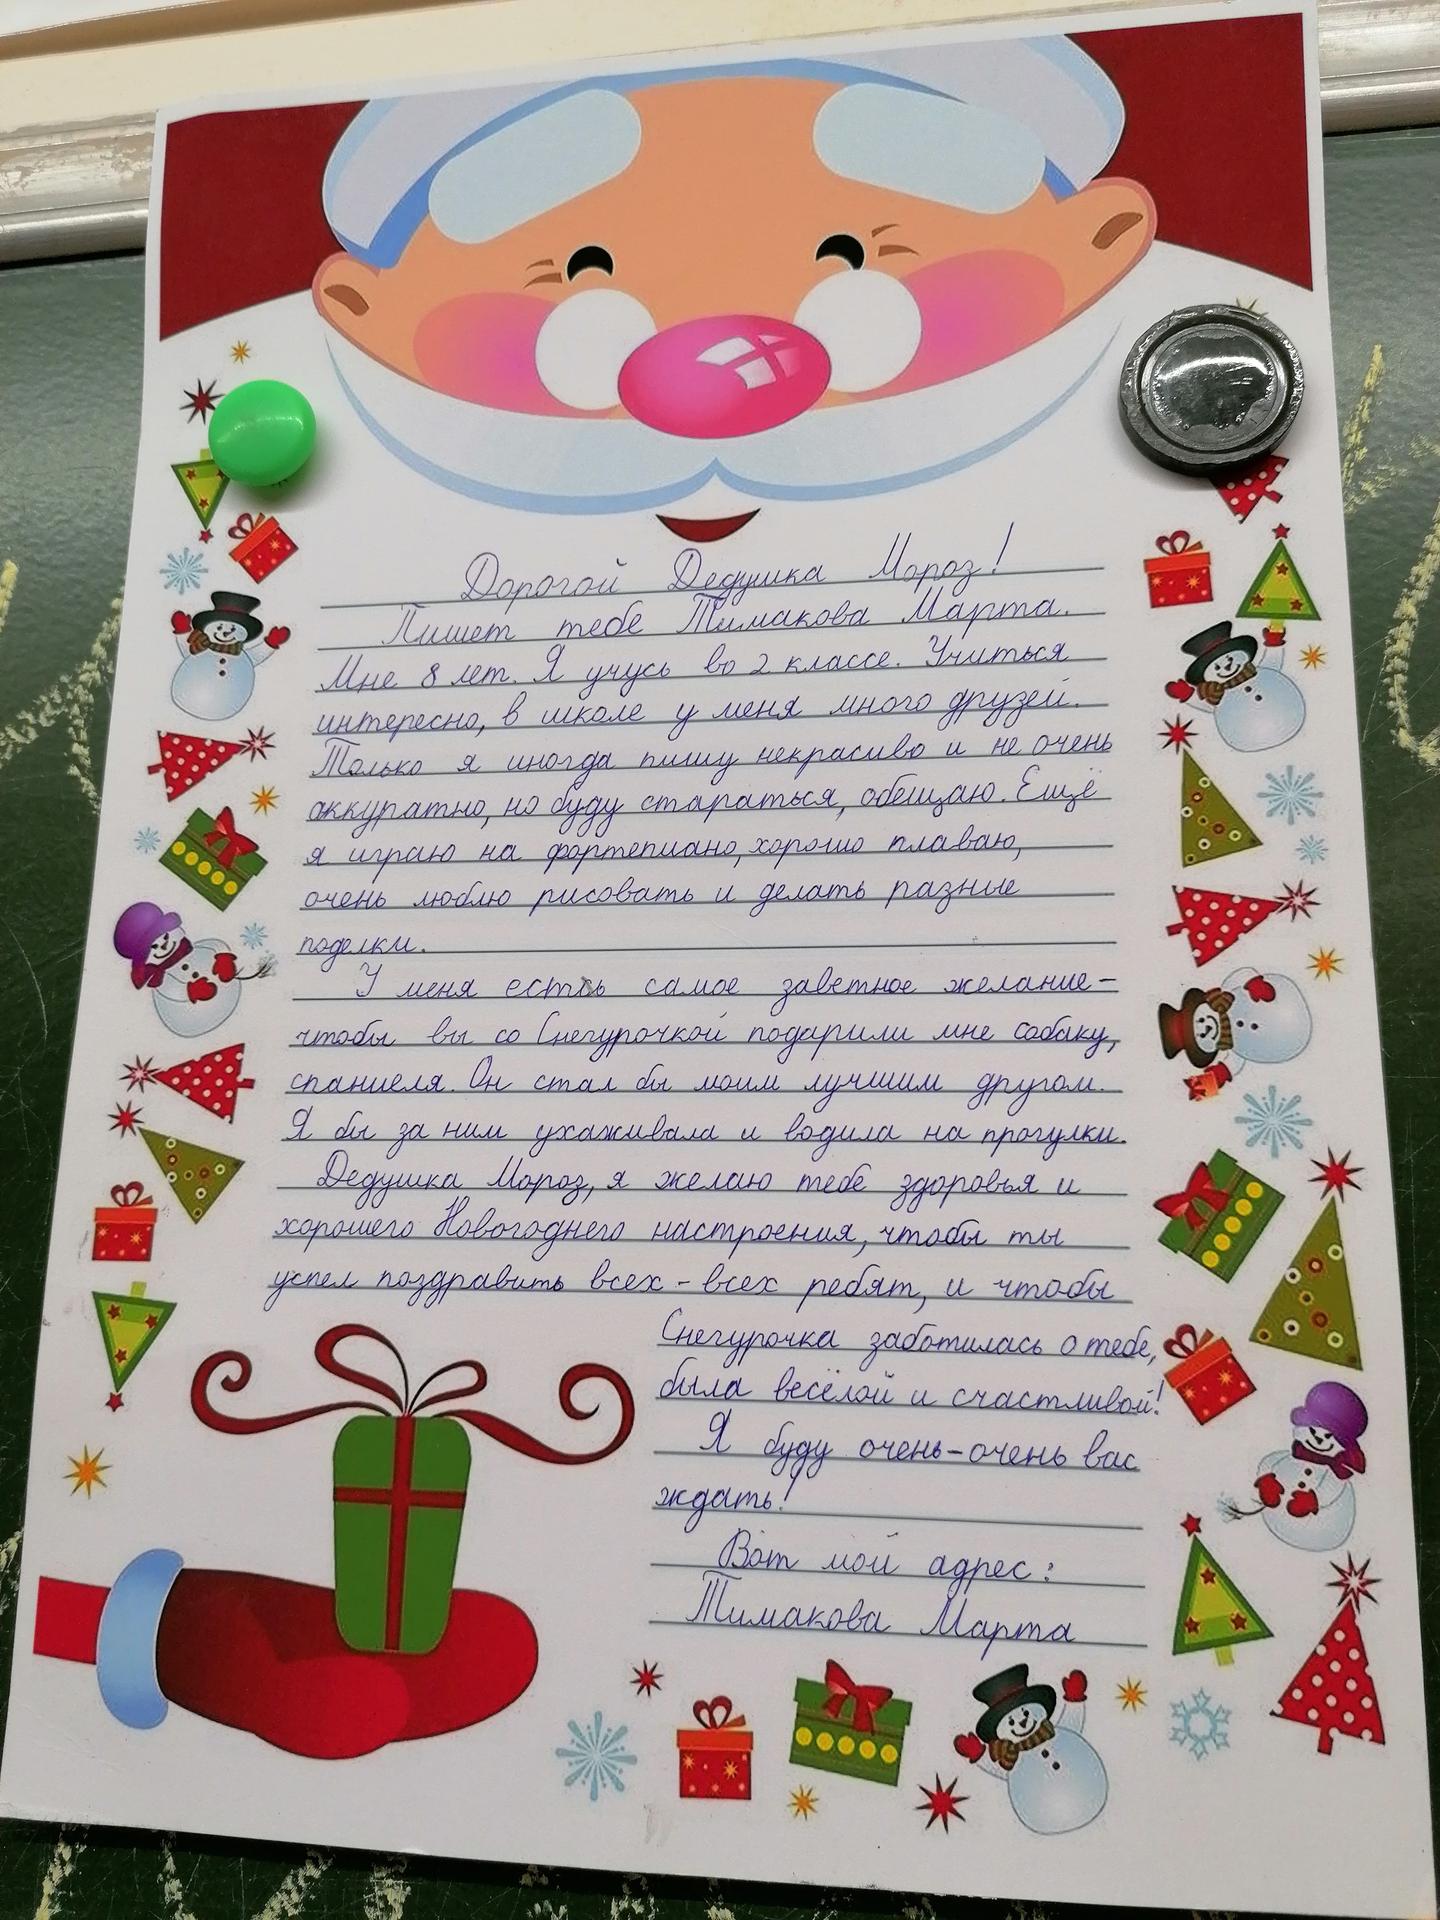 Дорогой Дедушка Мороз!
Пишет тебе Тимакова Марта.
Мне 8 лет. Я учусь во 2 классе. Учиться
интересно, в школе у меня много друзей.
Только я иногда пишу некрасиво и не очень
аккуратно, но буду стараться, обещаю. Ещё
я играю на фортепиано, хорошо плаваю,
очень люблю рисовать и делать разные
поделки.
У меня есть самое заветное желание -
чтобы вы со Снегурочкой подарили мне собаку,
спаниеля. Он стал бы моим лучшим другом.
Я бы за ним ухаживала и водила на прогулки.
Дедушка Мороз, я желаю тебе здоровья и
хорошего Новогоднего настроения, чтобы ты
успел поздравить всех - всех ребят, и чтобы
Снегурочка заботилась о тебе,
была весёлой и счастливой!
Я буду очень-очень вас
ждать!
Вот мой адрес:
Тимакова Марта